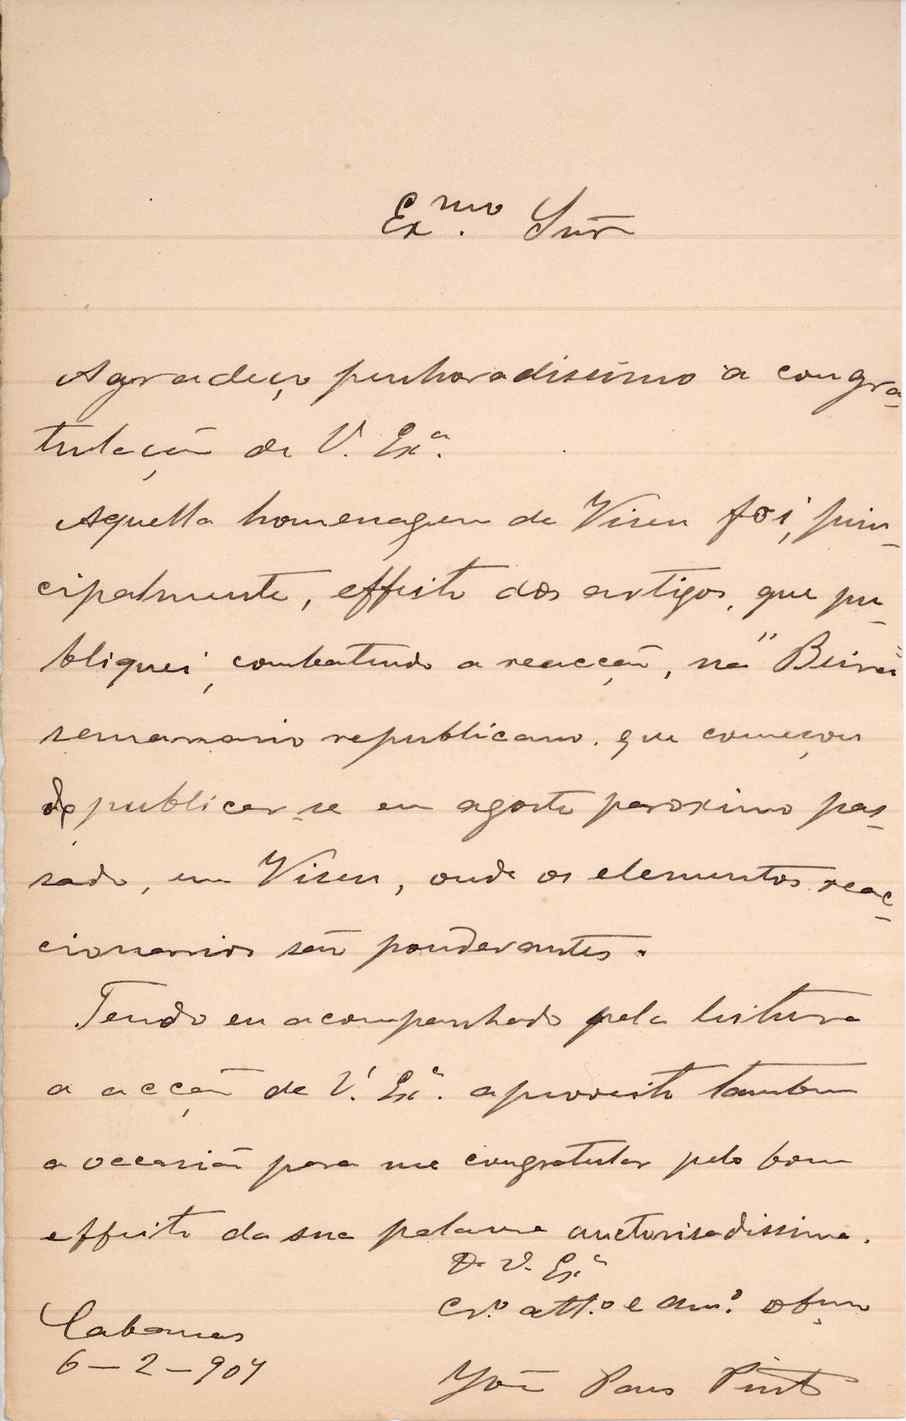 Ex.mo Snr
Agradeço penhoradissimo a congra-
tulação de V. Exª.
Aquella homenagem de Viseu foi, prin-
cipalmente, effeito dos artigos, que pu-
bliquei, combatendo a reacção, na "Beira"
semanario republicano. que começou
de publicar-se em agosto proximo pas-
sado, em Viseu, onde os elementos reac-
cionarios são ponderantes.
Tendo eu acompanhado pela leitura
a acção de V. Exª. aproveito tambem
a occasião para me congratular pelo bom
effeito da sua palavra auctorisadissima.
De V. Exª
Cr.º att.º e am.º obgmo
Cabanas
6-2-907
João Paes Pinto